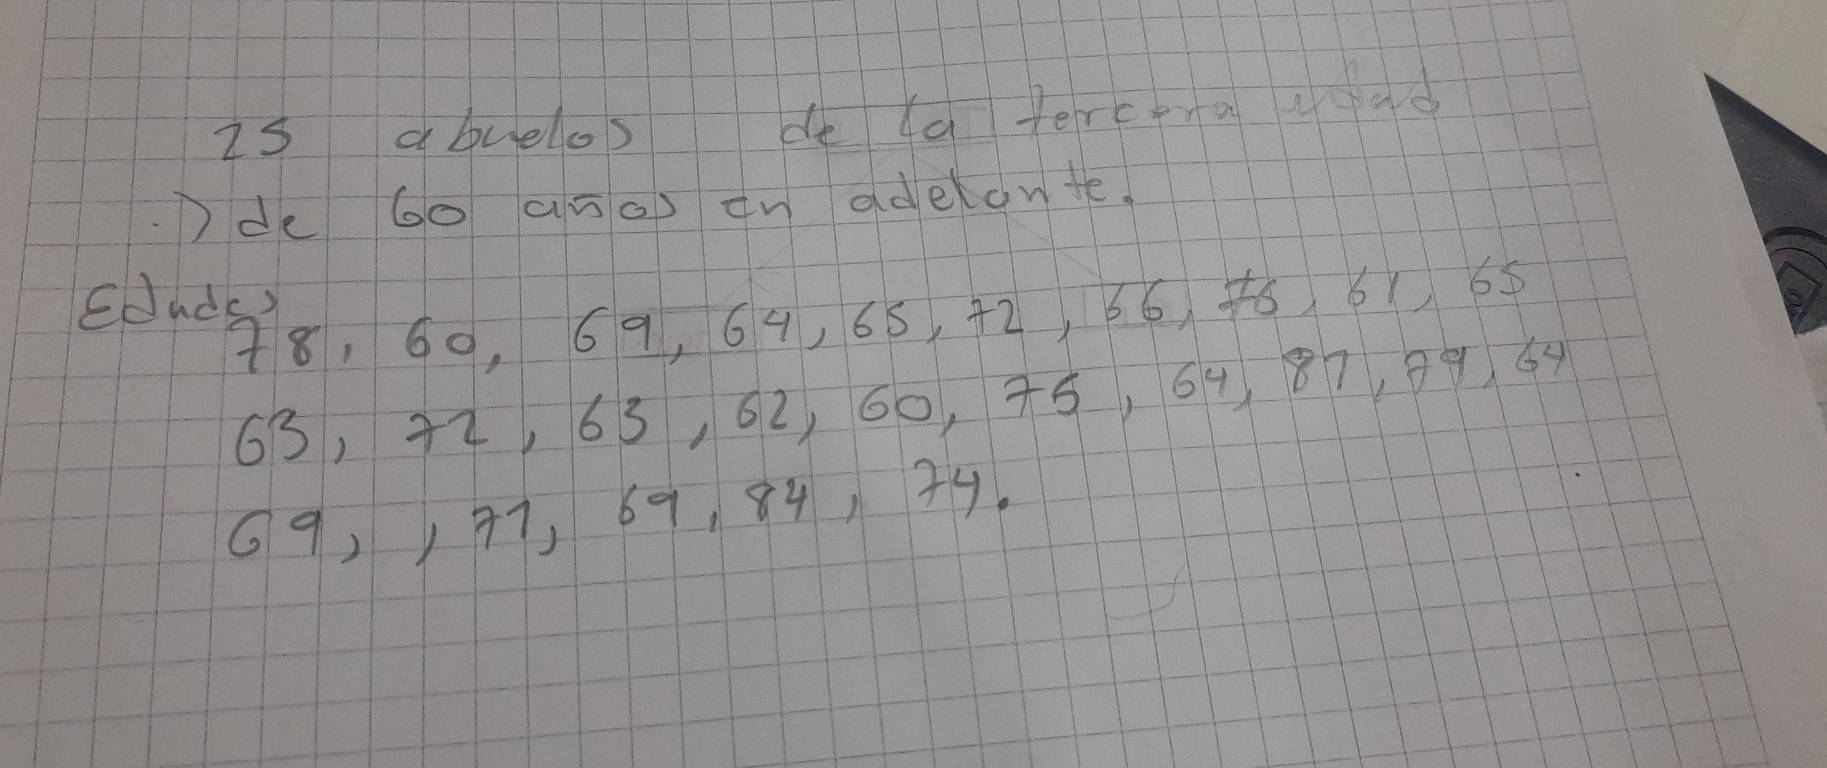 25 abuelos de la tercera edad
.) de 60 años en adelante.
Edades
78, 60, 69, 64, 65, 72, 66, 76, 61, 65
63, 72, 63, 62, 60, 75, 64, 87, 79, 64
69, , 71, 69, 84, 74.